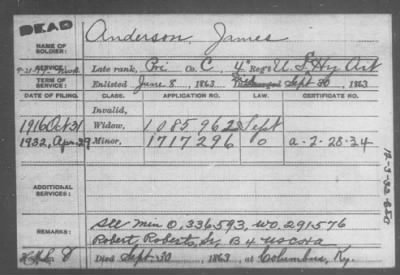 DEAD
Anderson, James
NAME OF SOLDIER:
SERVICE: Late rank, Pri Co. C, 4" Reg't U.S. Hy Art
TERM OF SERVICE: Enlisted June 8, 1863 Discharged Sept 30, 1863
DATE OF FILING. CLASS. APPLICATION NO. CERTIFICATE NO.
Invalid,
1916 Oct 31 Widow, 1085962 Sept
1932, Apr. 29 Minor, 1717296 0 a-2-28-34
ADDITIONAL SERVICES:
REMARKS: See Min O, 336.593, WO, 291.576
Robert, Roberts, B 4 USCHA
Died Sept 30 1863, at Columbus, Ky.
12-3-32